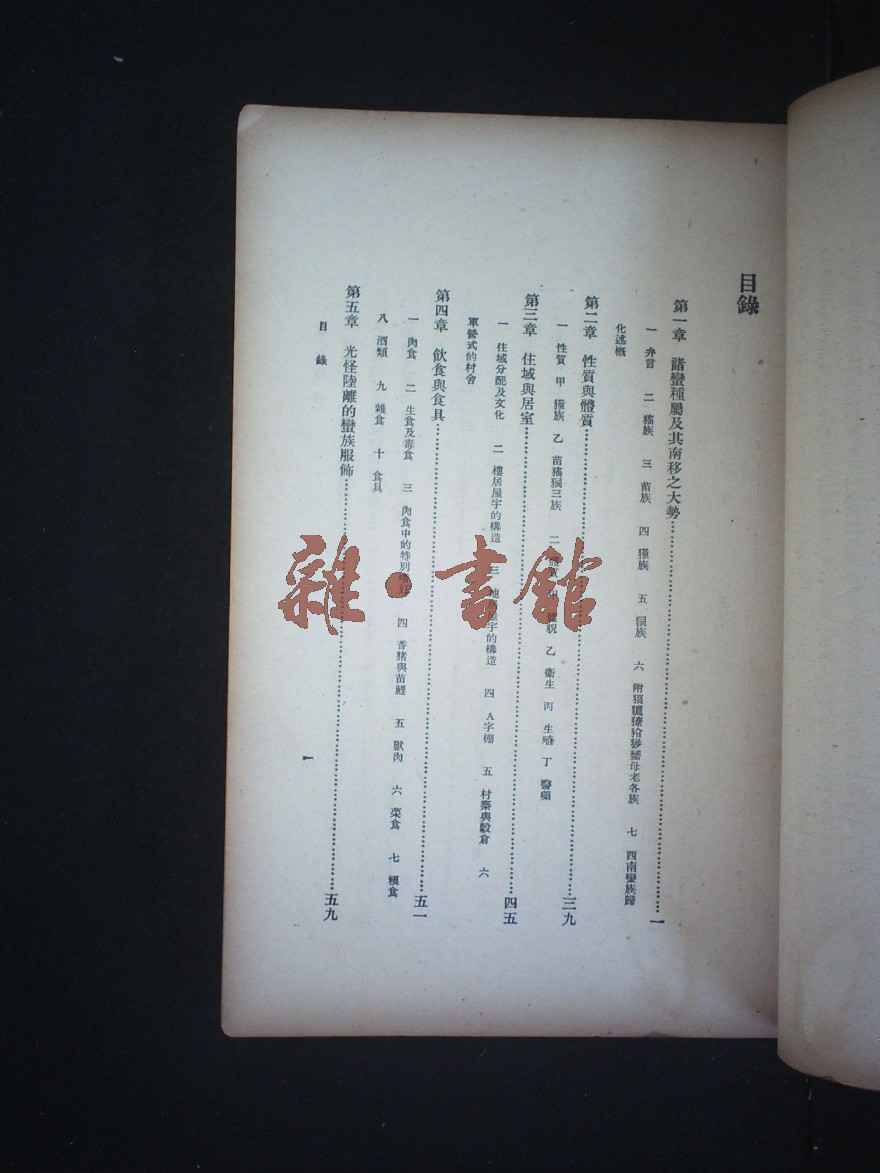 目錄
第一章 諸蠻種屬及其南移之大勢……一
一 弁言 二 猺族 三 苗族 四 獞族 五 狪族 六 附 各族 七 西南蠻族歸
化述概
第二章 性質與體質……三九
一 性質 甲 獞族 乙 苗猺狪三族 二 乙 衞生 丙 生 丁 醫藥
第三章 住域與居室……四五
一 住域分配及文化 二 樓居屋宇的構造 三 屋宇的構造 四 A字棚 五 村寨與穀倉 六
軍營式的村舍
第四章 飲食與食具……五一
一 肉食 二 生食及毒食 三 肉食中的特別嗜好 四 香猪與苗鯉 五 獸肉 六 菜食 七 糧食
八 酒類 九 雜食 十 食具
第五章 光怪陸離的蠻族服佈……五九
目錄
一
雜·書館